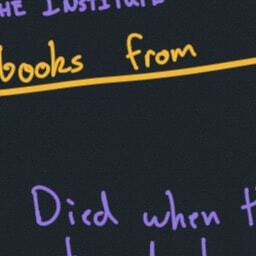 THE INSTITUTE
books from
Died when